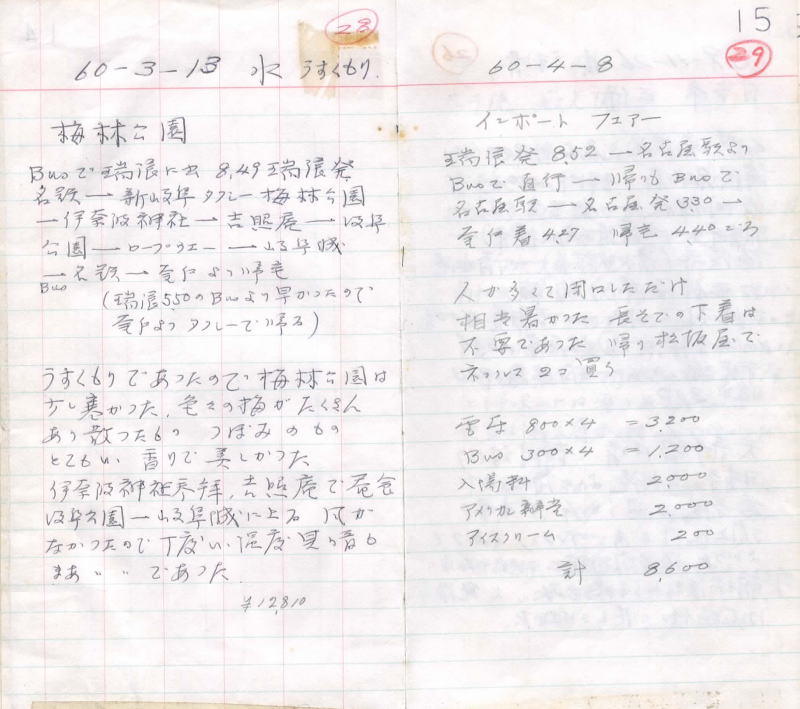 28
60-3-13 水 うすくもり.
梅林公園
Busで瑞浪に出 8,49瑞浪発
名鉄ー新岐阜 タクシー梅林公園
ー伊奈波神社ー吉照庵ー岐阜
公園ーロープウエーー岐阜城
ー名鉄ー より帰宅
Bus
(瑞浪5,50のBusより早かったので
よりタクシーで帰る)
うすくもりであったので梅林公園は
少し寒かった. 色々の梅がたくさん
あり散ったもの つぼみのもの
とてもいい香りで美しかった
伊奈波神社参拝. 吉照庵で昼食
岐阜公園ー岐阜城に上る 風が
なかったので丁度いい温度 も
まあ〃〃であった.
¥12,810
15
29
60-4-8
インポート フェアー
瑞浪発 8,52 ー名古屋駅より
Busで直行ー帰りもBusで
名古屋駅ー名古屋発 3,30ー
着4,27 帰宅 4,40ごろ
人が多くて閉口しただけ
相当暑かった 長そでの下着は
不要であった 帰り松坂屋で
ネックレス2つ買う
電車 800×4 =3,200
Bus 300×4 =1,200
入場料 2,000
アメリカン弁当 2,000
アイスクリーム 200
計 8,600